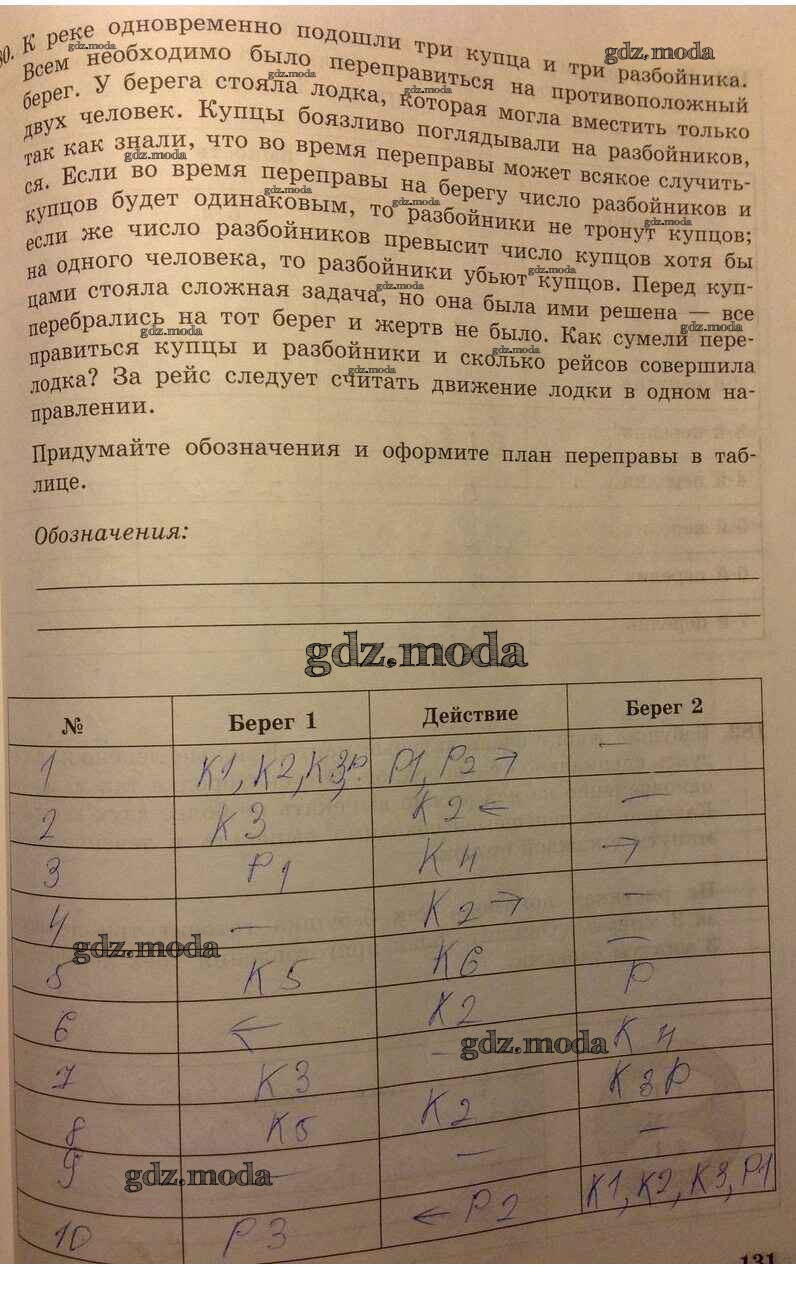 80. К реке одновременно подошли три купца и три разбойника.
Всем необходимо было переправиться на противоположный
берег. У берега стояла лодка, которая могла вместить только
двух человек. Купцы боязливо поглядывали на разбойников,
так как знали, что во время переправы может всякое случить-
ся. Если во время переправы на берегу число разбойников и
купцов будет одинаковым, то разбойники не тронут купцов;
если же число разбойников превысит число купцов хотя бы
на одного человека, то разбойники убьют купцов. Перед куп-
цами стояла сложная задача, но она была ими решена — все
перебрались на тот берег и жертв не было. Как сумели пере-
правиться купцы и разбойники и сколько рейсов совершила
лодка? За рейс следует считать движение лодки в одном на-
правлении.
Придумайте обозначения и оформите план переправы в таб-
лице.
Обозначения:
gdz.moda
№ Берег 1 Действие Берег 2
1 К1, К2, К3, Р. Р1, Р2 → –
2 К3 К2 ← –
3 Р1 К4 →
4 – К2 → –
5 К5 К6 –
Р
6 ← К2
7 К3 – К4
8 К5 К2 К3Р
9 – – –
10 Р3 ← Р2 К1, К2, К3, Р1
131